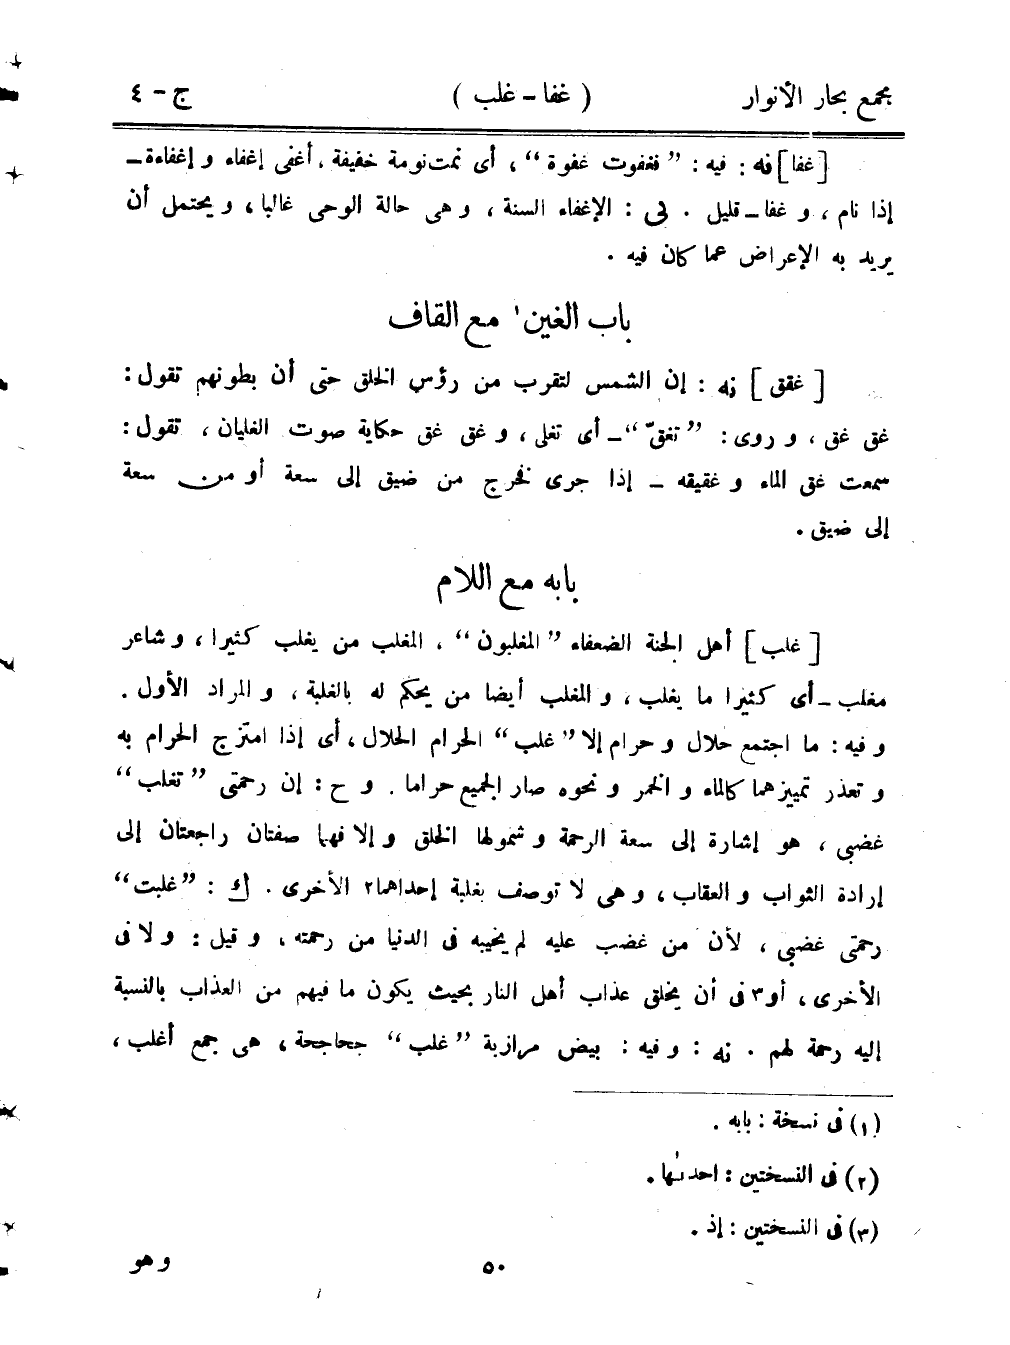 مجمع بحار الأنوار ( غفا - غلب ) ج - ٤
[غفا] نه : فيه : ”فغفوت غفوة“ ، أى نمت نومة خفيفة ، أغفى إغفاء و إغفاءة –
إذا نام ، و غفا – قليل . فى : الإغفاء السنة ، و هى حالة الوحى غالبا ، و يحتمل أن
يريد به الإعراض عما كان فيه .
باب الغين ١ مع القاف
[ غقق ] نه : إن الشمس لتقرب من رؤس الخلق حتى أن بطونهم تقول :
غق غق ، و روى : ”تغقّ“ – أى تغلى ، و غق غق حكاية صوت الغليان ، تقول :
سمعت غق الماء و غقيقه – إذا جرى فخرج من ضيق إلى سعة أو من سعة
إلى ضيق .
بابه مع اللام
[ غلب ] أهل الجنة الضعفاء ”المغلبون“ ، المغلب من يغلب كثيرا ، و شاعر
مغلب – أى كثيرا ما يغلب ، و المغلب أيضا من يحكم له بالغلبة ، و المراد الأول .
و فيه : ما اجتمع حلال و حرام إلا ”غلب“ الحرام الحلال ، أى إذا امتزج الحرام به
و تعذر تمييزهما كالماء و الخمر و نحوه صار الجميع حراما . و ح : إن رحمتى ”تغلب“
غضبى ، هو إشارة إلى سعة الرحمة و شمولها الخلق و إلا فهما صفتان راجعتان إلى
إرادة الثواب و العقاب ، و هى لا توصف بغلبة إحداهما٢ الأخرى . ك : ”غلبت“
رحمتى غضبى ، لأن من غضب عليه لم يخيبه فى الدنيا من رحمته ، و قيل : و لا فى
الأخرى ، أو٣ فى أن يخلق عذاب أهل النار بحيث يكون ما فيهم من العذاب بالنسبة
إليه رحمة لهم . نه : و فيه : بيض مرازبة ”غلب“ جحاجحة ، هى جمع أغلب ،
(١) فى نسخة : بابه .
(٢) فى النسختين : احدٮٰها .
(٣) فى النسختين : إذ .
٥٠ و هو